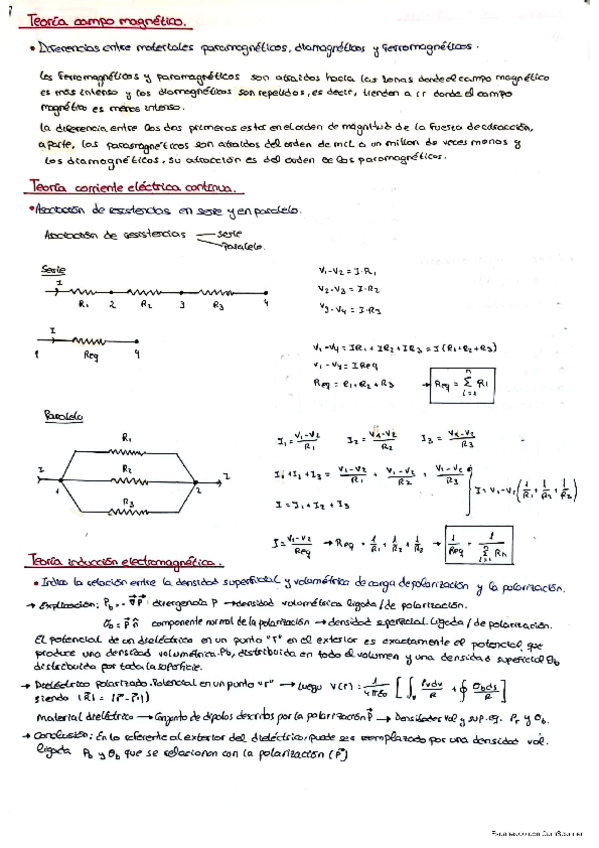 Teoría campo magnético.
• Diferencias entre materiales paramagnéticos, diamagnéticos y ferromagnéticos.
Los ferromagnéticos y paramagnéticos son atraídos hacia las zonas donde el campo magnético
es más intenso y los diamagnéticos son repelidos, es decir, tienden a ir donde el campo
magnético es menos intenso.
La diferencia entre los dos primeros está en el orden de magnitud de la fuerza de atracción,
aparte, los paramagnéticos son atraídos del orden de mil a un millon de veces menos y
los diamagnéticos, su atracción es del orden de los paramagnéticos.
Teoría corriente eléctrica continua.
• Asociación de resistencias en serie y en paralelo.
Asociación de resistencias — serie
paralelo.
Serie
I
R1 2 R2 3 R3 4
V1-V2 = I·R1
V2-V3 = I·R2
V3-V4 = I·R3
I
1 Req 4
V1-V4 = IR1 + IR2 + IR3 = I(R1+R2+R3)
V1-V4 = IReq
Req = R1+R2+R3 → Req = Σ Ri
n
i=1
Paralelo
R1
I 1 R2 2 I
R3
I1 = V1-V2/R1 I2 = V1-V2/R2 I3 = V1-V2/R3
I1+I2+I3 = V1-V2/R1 + V1-V2/R2 + V1-V2/R3
I = I1+I2+I3
I = V1-V2 (1/R1 + 1/R2 + 1/R3)
I = V1-V2/Req → Req = 1/R1 + 1/R2 + 1/R3 → 1/Req = 1/Σ Rn
Teoría inducción electromagnética.
• Indica la relación entre la densidad superficial y volumétrica de carga de polarización y la polarización.
→ Explicación: Pb = -∇P divergencia P → densidad volumétrica ligada/de polarización.
σb = P·n componente normal de la polarización → densidad superficial ligada/de polarización.
El potencial de un dieléctrico en un punto "r" en el exterior es exactamente el potencial que
produce una densidad volumétrica Pb, distribuida en todo el volumen y una densidad superficial σb
distribuida por toda la superficie.
→ Dieléctrico polarizado. Potencial en un punto "r" → luego V(r) = 1/4πε0 [∫ Pvdv/R + ∮ σbds/R]
siendo (|R| = |r-r'|)
Material dieléctrico → Conjunto de dipolos descritos por la polarización P → Densidades vol y sup. eg. Pv y σb.
→ Conclusión: En lo referente al exterior del dieléctrico, puede ser reemplazado por una densidad vol.
ligada Pb y σb que se relacionen con la polarización (P)
Escaneado con CamScanner